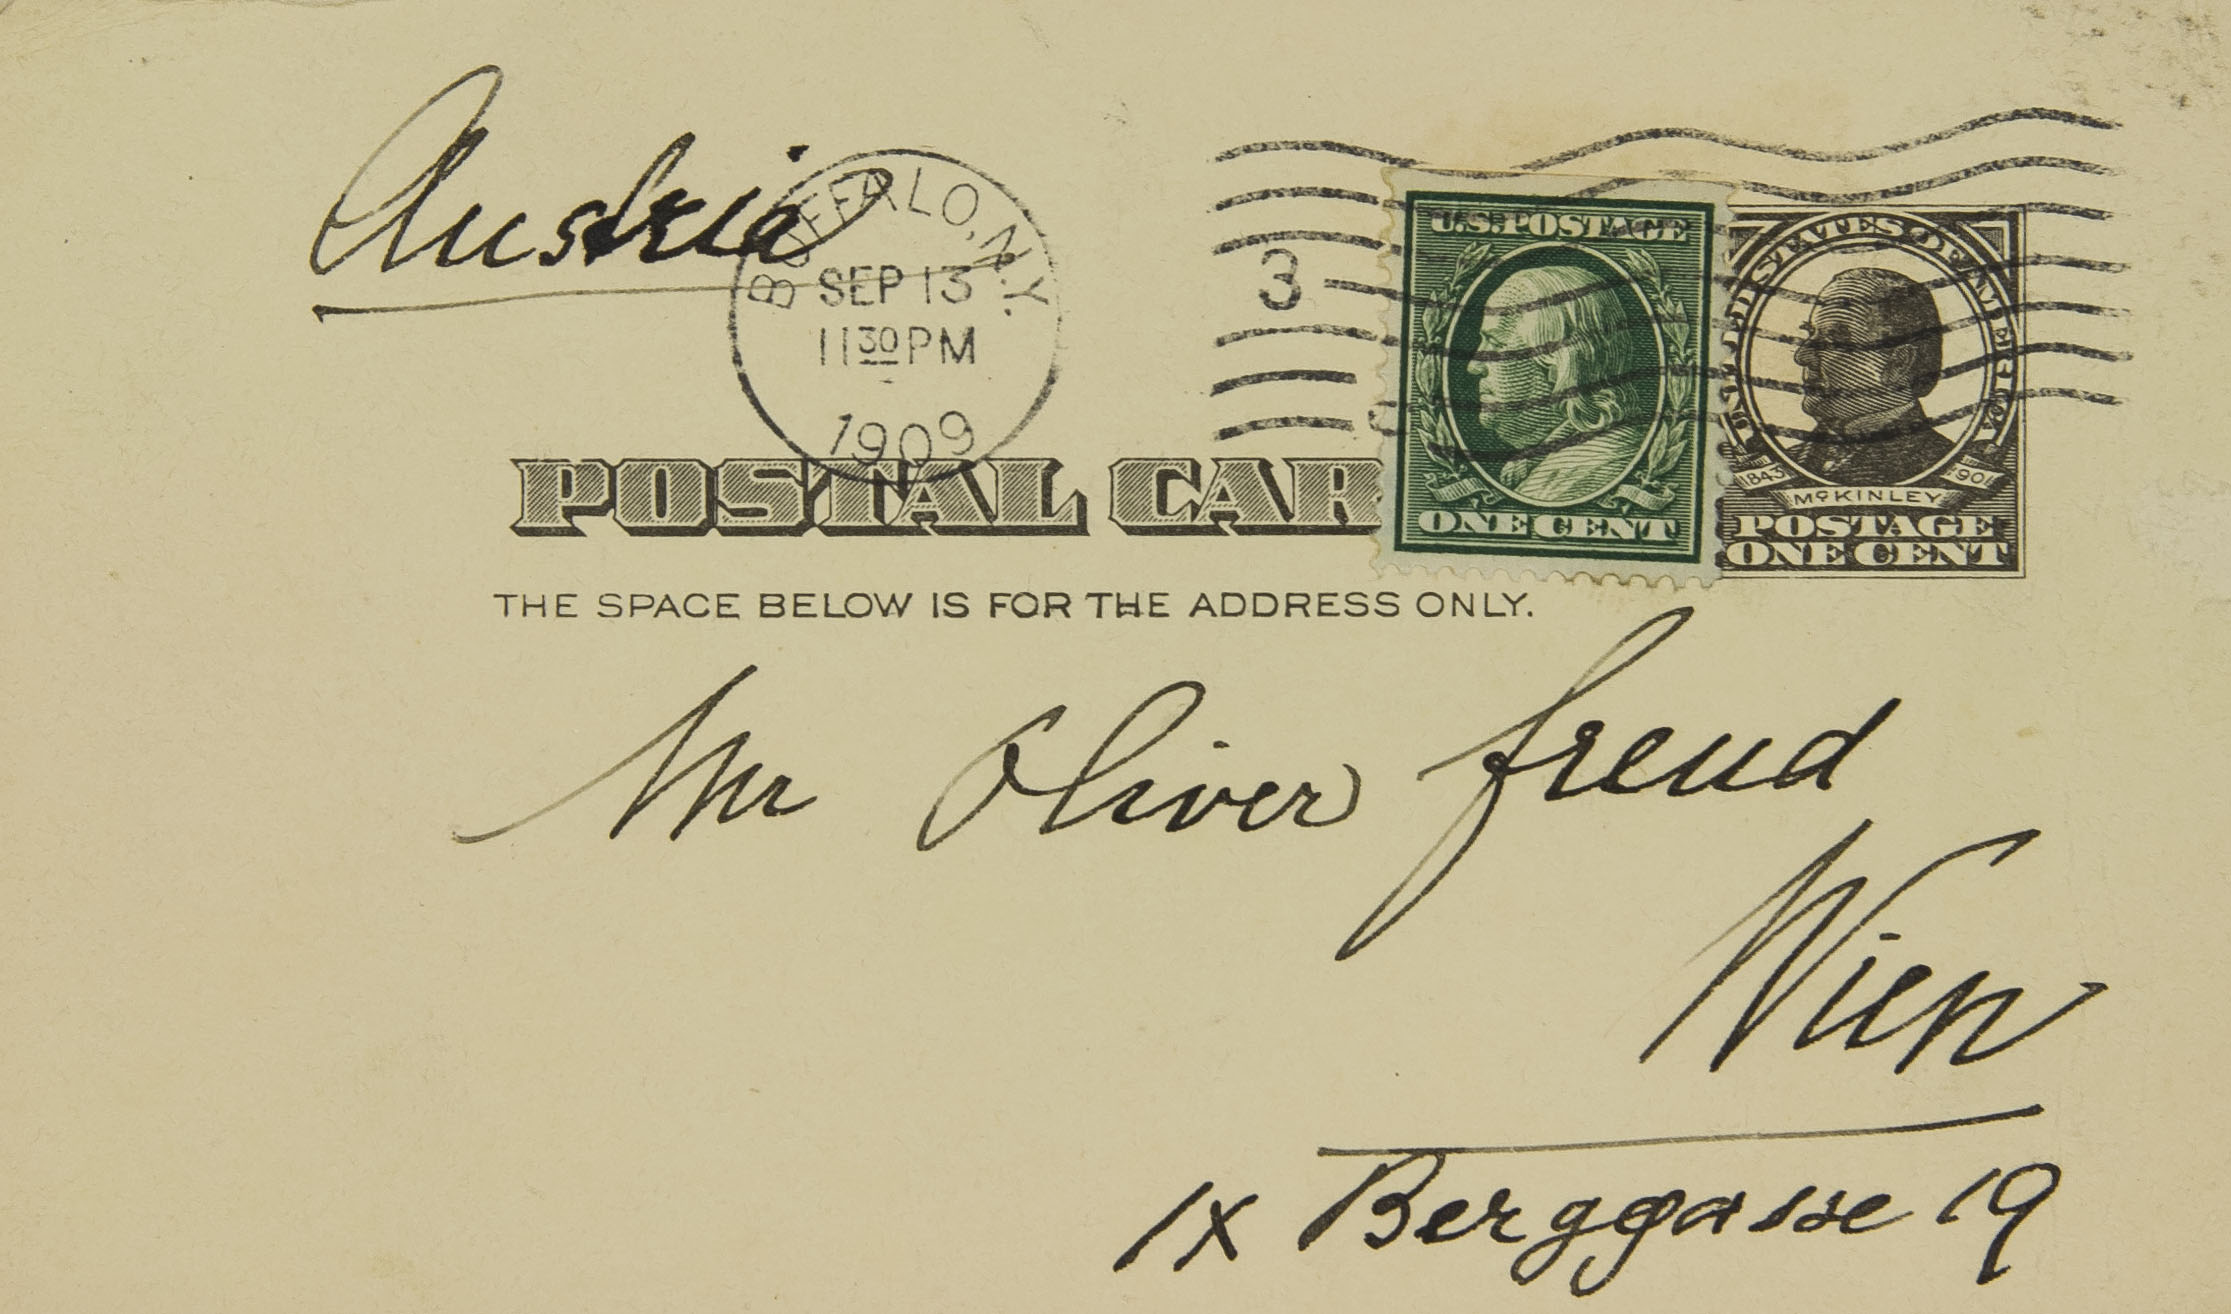 Austria
BUFFALO, N.Y.
SEP 13
11 30 PM
1909
3
U.S. POSTAGE
ONE CENT
UNITED STATES OF AMERICA
1843 1901
McKINLEY
POSTAGE
ONE CENT
POSTAL CAR
THE SPACE BELOW IS FOR THE ADDRESS ONLY.
Mr Oliver Freud
Wien
IX Berggasse 19